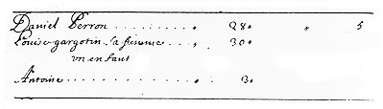 Daniel Perron .......... " 28" " 5
Louise gargotin Sa femme ... , 30"
vn enfant
Antoine .......... " 3"